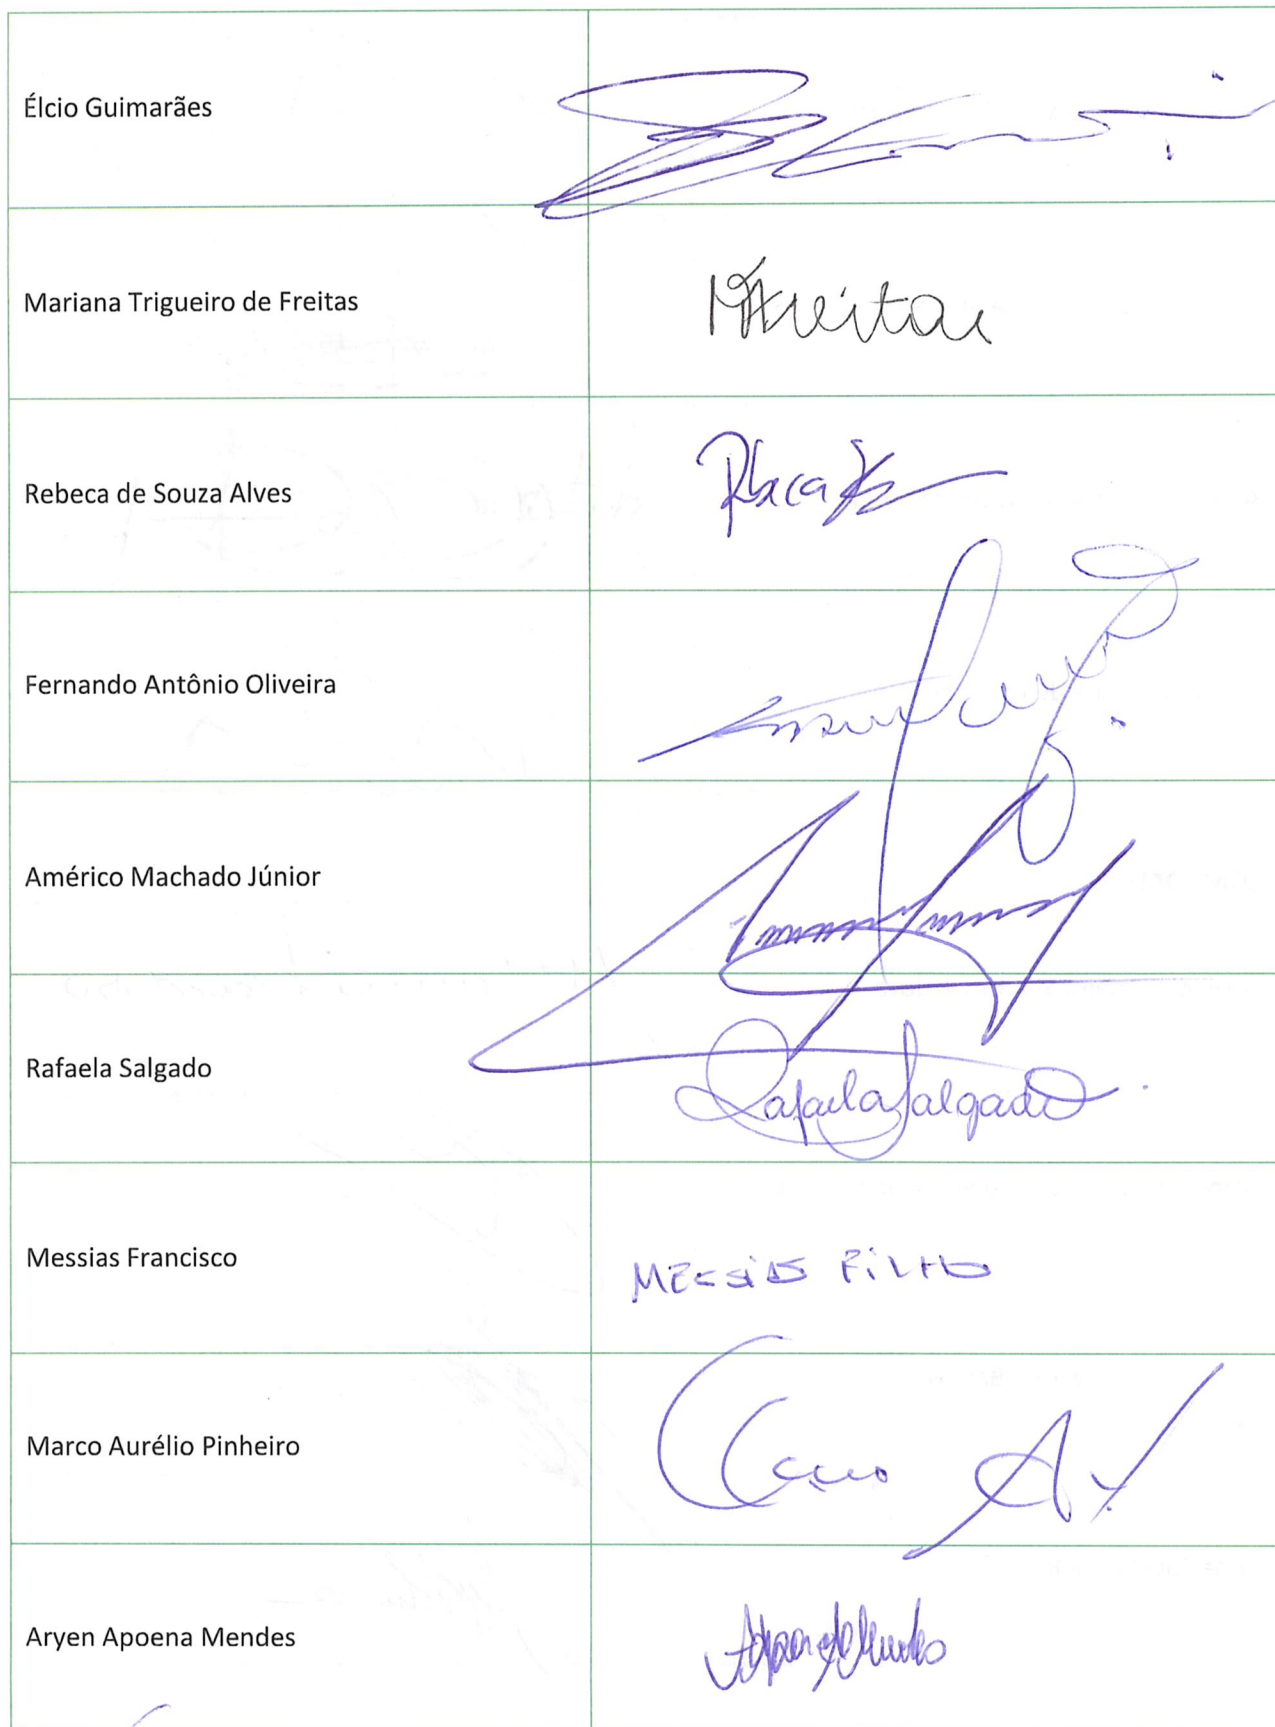 Élcio Guimarães
Mariana Trigueiro de Freitas
MTFreitas
Rebeca de Souza Alves
Rebeca
Fernando Antônio Oliveira
Américo Machado Júnior
Rafaela Salgado
Rafaela Salgado
Messias Francisco
MESSIAS FILHO
Marco Aurélio Pinheiro
Aryen Apoena Mendes